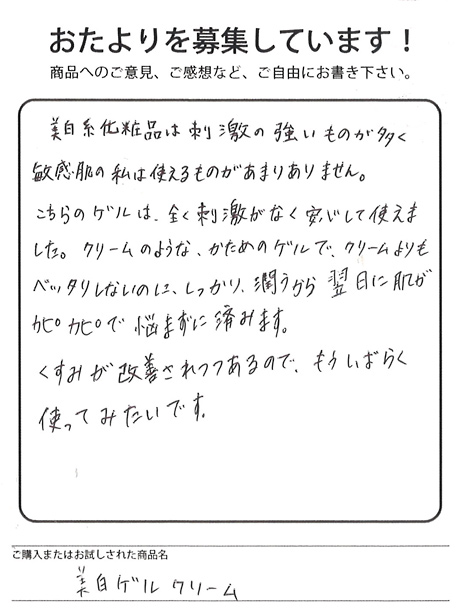 おたよりを募集しています！
商品へのご意見、ご感想など、ご自由にお書き下さい。
美白系化粧品は刺激の強いものが多く
敏感肌の私は使えるものがあまりありません。
こちらのゲルは、全く刺激がなく安心して使えま
した。クリームのような、かためのゲルで、クリームよりも
ベッタリしないのに、しっかり、潤うから翌日に肌が
カピカピで悩まずに済みます。
くすみが改善されつつあるので、もうしばらく
使ってみたいです。
ご購入またはお試しされた商品名
美白ゲルクリーム